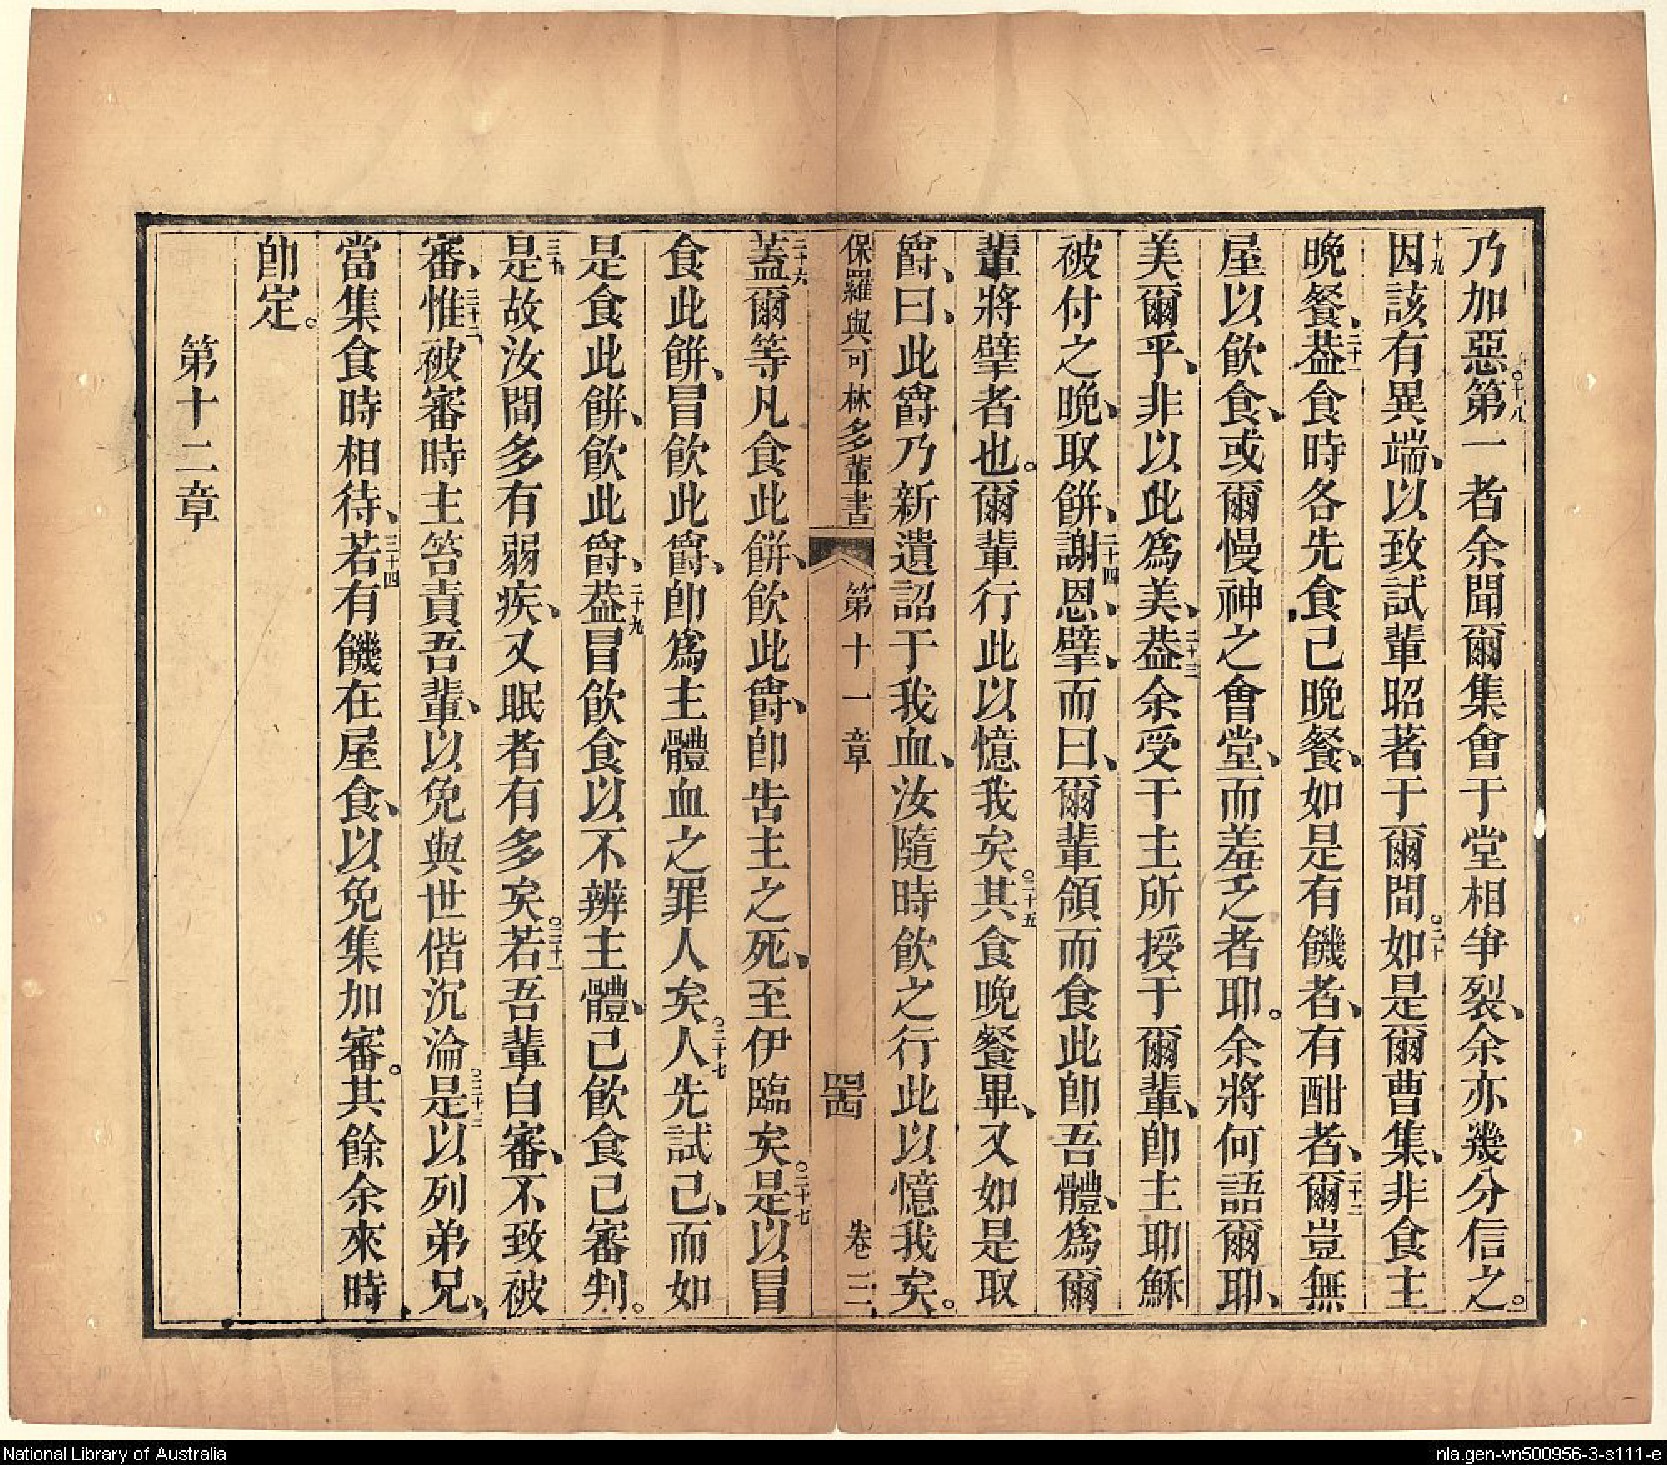 乃加惡。十八第一者余聞爾集會于堂相爭裂、余亦幾分信之。
十九因該有異端、以致試輩昭著于爾間。二十如是爾曹集、非食主
晚餐、二十一葢食時各先食己晚餐、如是有饑者、有酣者、二十二爾豈無
屋以飲食、或爾慢神之會堂、而羞乏者耶。余將何語爾耶、
美爾乎、非以此爲美、二十三葢余受于主所授于爾輩、卽主耶穌
被付之晚、取餅、二十四謝恩、擘、而曰、爾輩領而食此卽吾體、爲爾
輩將擘者也。爾輩行此以憶我矣。二十五其食晚餐畢、又如是取
爵、曰、此爵乃新遺詔于我血、汝隨時飲之行此以憶我矣。
保羅與可林多輩書 第十一章 卷三
二十六蓋爾等凡食此餅、飲此爵、卽告主之死、至伊臨矣。二十七是以冒
食此餅、冒飲此爵、卽爲主體血之罪人矣。二十七人先試己、而如
是食此餅、飲此爵、二十九葢冒飲食以不辨主體、己飲食己審判。
三十是故汝間多有弱疾、又眠者有多矣。三十一若吾輩自審、不致被
審、三十二惟被審時主笞責吾輩、以免與世偕沉淪。三十三是以列弟兄、
當集食時相待、三十四若有饑在屋食、以免集加審。其餘余來時
卽定。
第十二章
National Library of Australia
nla.gen-vn500956-3-s111-e